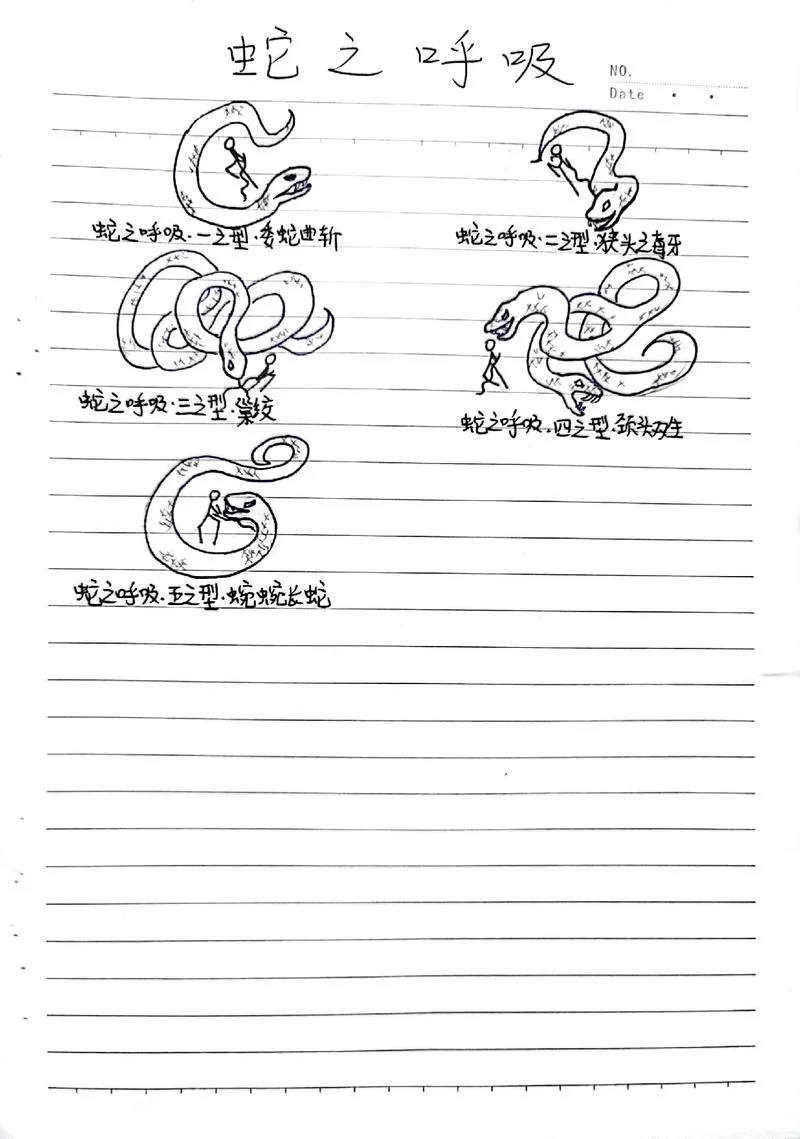 蛇之呼吸
NO.
Date
蛇之呼吸·一之型·委蛇曲斩
蛇之呼吸·二之型·狭头之毒牙
蛇之呼吸·三之型·巢绞
蛇之呼吸·四之型·颈头双生
蛇之呼吸·五之型·蜿蜿长蛇